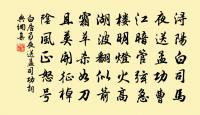 潯陽白司馬
夜送孟功曹
江暗管弦急
樓明燈火高
湖波翻似箭
霜草殺如刀
且莫開征棹
陰風正怒號
白居易夜送孟司功